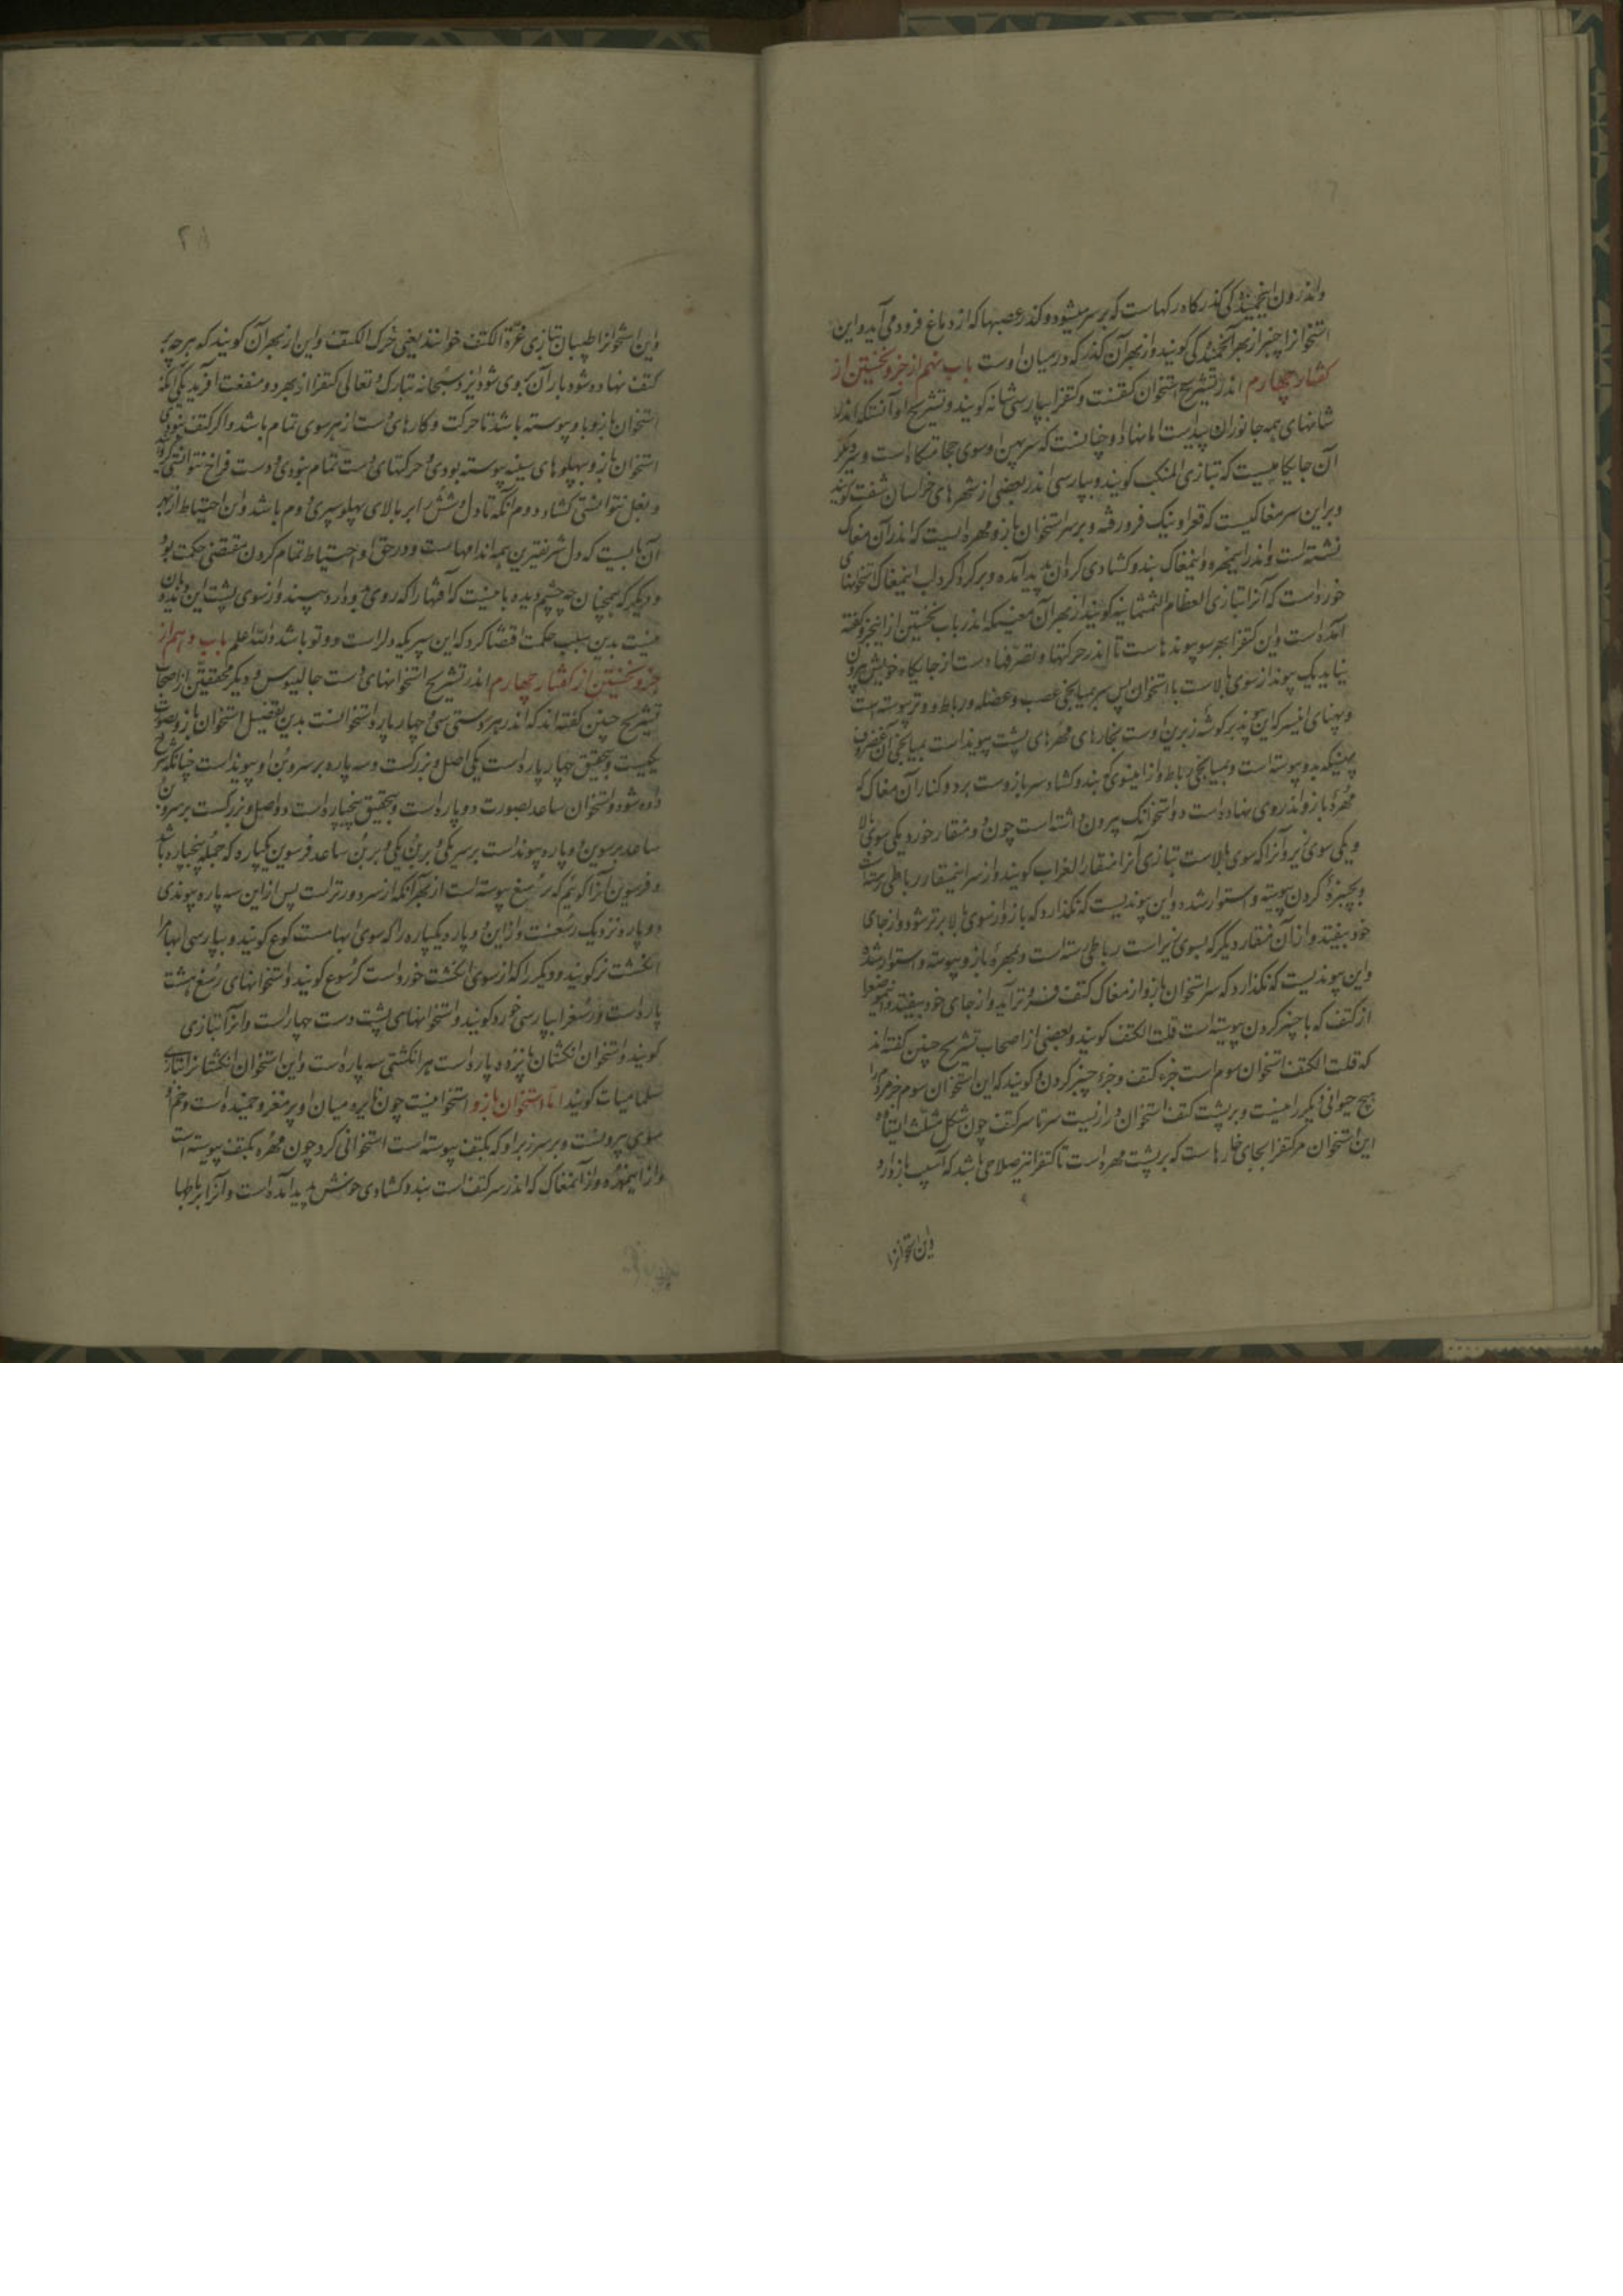 واندرون این خمیدگی گذرگاه رگهاست که بر سر میشود و گذر عصبها که از دماغ فرود می آید و این
استخوانرا چنبر از بهر آن خمیدگی گویند و از بهر آن گذر که در میان اوست باب نهم از جزو نخستین از
گفتار چهارم اندر تشریح استخوان کتفست و کتفرا بپارسی شانه گویند و تشریح او آنستکه اندر
شانهای همه جانوران پیداست اما نهاد او چنانست که سر پهن او سوی حجامتگاه است و سر دیگر
آن جایگاهیست که بتازی المنکب گویند و بپارسی اندر بعضی از شهرهای خراسان شفت گویند
و بر این سر مغاکیست که قعر او نیک فرو رفته و بر سر استخوان بازو مهره ایست که اندر آن مغاک
نشسته است و اندر این مهره و این مغاک بند و کشادی کردان پدید آمده و بر کرداکرد لب این مغاک استخوانهای
خورد است که آنرا بتازی العظام السمسمانیه گویند از بهر آن معنی که اندر باب نخستین از این جزو گفته
آمده است و این کتفرا بهر سو پیوندهاست تا اندر حرکتها و تصرفهای دست از جایگاه خویش بیرون
نیاید یک پیوند از سوی بالاست با استخوان پس سر بمیانجی عصب و عضله و رباط و وتر پیوسته است
و پهنای این سر که این پیوند بر گوشه زبرین اوست بخارهای مهرهای پشت پیوند است بمیانجی آن غضروف
پهن که بدو پیوسته است و بمیانجی رباط و از این سوی که بند و کشاد سر بازوست بر دو کنار آن مغاک که
مهره بازو اندر وی نهاده است دو استخوانک بیرون داشته است چون دو منقار خورد یکی سوی بالا
و یکی سوی زیر و آنرا که سوی بالاست بتازی آنرا منقار الغراب گویند و از سر این منقار رباطی رسته است
و بچنبره گردن پیوسته و استوار شده و این پیوندیست که نگذارد که بازو از سوی بالا برتر شود و از جای
خود بیفتد و از آن منقار دیگر که بسوی زیر است رباطی رسته است و بمهره بازو پیوسته و استوار شده
و این پیوندیست که نگذارد که سر استخوان بازو از مغاک کتف فروتر آید و از جای خود بیفتد و این موضعرا
از کتف که با چنبر گردن پیوسته است قلت الکتف گویند و بعضی از اصحاب تشریح چنین گفته اند
که قلت الکتف استخوان سوم است جزء کتف و جزء چنبر گردن و گویند که این استخوان سوم جز مردم را
هیچ حیوانی دیگر را نیست و بر پشت کتف استخوان درازیست سرتاسر کتف چون شکل مثلث ایستاده
این استخوان مر کتفرا بجای خارهاست که بر پشت مهره است تا کتفرا نیز صلابتی باشد که آسیب باز دارد
و این استخوانرا
۲۸
و این استخوانرا طبیبان بتازی غرة الکتف خوانند یعنی خرک الکتف و این از بهر آن گویند که هر چه بر
کتف نهاده شود بار آن بروی شود ایزد سبحانه تبارک و تعالی کتفرا از بهر دو منفعت آفرید یکی آنکه
استخوان بازو با او پیوسته باشد تا حرکت و کارهای دست از هر سوی تمام باشد و اگر کتف نبودی
استخوان بازو بپهلوهای سینه پیوسته بودی و حرکتهای دست تمام نبودی و دست فراخ نتوانستی کرد
و بغل نتوانستی کشاد دوم آنکه تا دل و شش را بر بالای پهلو سپری دوم باشد و این احتیاط از بهر
آن بایست که دل شریفترین همه اندامهاست و در حق او احتیاط تمام کردن مقتضی حکمت بود
و دیگر که همچنان چه چشم دیده بانیست که آفتها را که روی بدو دارد ببیند و از سوی پشت این دیده بان
نیست بدین سبب حکمت اقتضا کرد که این سپر که دلراست دو تو باشد والله اعلم باب دهم از
جزو نخستین از گفتار چهارم اندر تشریح استخوانهای دست جالینوس و دیگر محققین از اصحاب
تشریح چنین گفته اند که اندر هر دستی سی و چهار پاره استخوانست بدین تفصیل استخوان بازو بصورت
یکیست و بتحقیق چهار پاره است یکی اصل و بزرگست و سه پاره بر سر و بن او پیوند است چنانکه شرح
داده شود و استخوان ساعد بصورت دو پاره است و بتحقیق پنجپاره است دو اصل و بزرگست بر سر و بن
ساعد برسوین دو پاره پیوند است بر سر یکی و بر بن یکی و بر بن ساعد فرسوین یکپاره که جمله پنجپاره باشد
و فرسوین آنرا گوئیم که برسغ پیوسته است از بهر آنکه از سر دورتر است پس از این سه پاره پیوندی
دو پاره نزدیک رسغست و از این دو پاره یکپاره را که سوی ابهامست کوع گویند و بپارسی ابهام را
انگشت نر گویند و دیگر را که از سوی انگشت خورد است کرسوع گویند و استخوانهای رسغ هشت
پاره است و رسغرا بپارسی خورده گویند و استخوانهای پشت دست چهار است و آنرا بتازی
گویند و استخوان انگشتان پانزده پاره است هر انگشتی سه پاره است و این استخوان انگشتانرا بتازی
سلامیات گویند اما استخوان بازو استخوانیست چون نایژه میان او پر مغز و خمیده است و خم او
سوی بیرونست و بر سر زبر او که بکتف پیوسته است استخوانی گرد چون مهره بکتف پیوسته است
و از این مهره و از آن مغاک که اندر سر کتف است بند و کشادی خویش پدید آمده است و آنرا برباطها